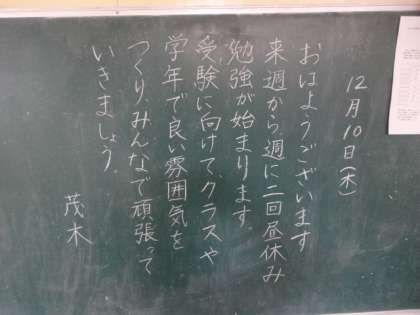 12月10日(木)
おはようございます
来週から、週に二回昼休み
勉強が始まります。
受験に向けて、クラスや
学年で良い雰囲気を
つくり、みんなで頑張って
いきましょう。
茂木